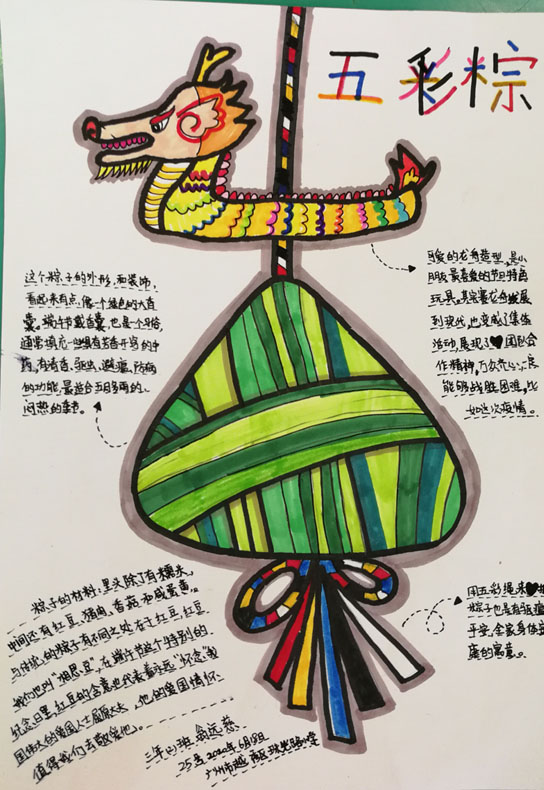 五彩粽
可爱的龙舟造型,是小
朋友最喜爱的节日特色
玩具。其实赛龙舟发展
到现代,也变成了集体
活动,展现了团队合
作精神,
能够战胜困难,比
如这次疫情。
这个粽子的外形,和装饰,
看起来有点像一个绿色的大香
囊。端午节戴香囊,也是个习俗,
通常填充一些具有芳香开窍的中
药,有清香、驱虫、避瘟、防病
的功能,最适合五月多雨的、
闷热的季节。
粽子的材料,里头除了有糯米,
中间还有红豆、猪肉、香菇和咸蛋黄。
与传统的粽子有不同之处在于红豆,红豆
我们也叫“相思豆”,在端午节这个特别的
纪念日里,红豆的含意也代表着永远“怀念”我
国伟大的爱国人士屈原大夫,他的爱国情怀
值得我们去敬仰他。
用五彩绳来
粽子也是有驱瘟
平安,全家身体安
康的寓意。
三年(1)班 翁远慈
25号 2020年6月8日
广州市越秀区